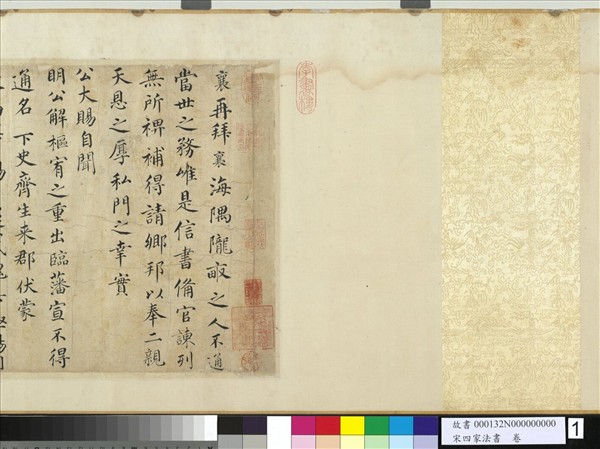 襄再拜襄海隅隴畝之人不通
當世之務唯是信書備官諫列
無所裨補得請鄉邦以奉二親
天恩之厚私門之幸實
公大賜自聞
明公解樞宥之重出臨藩宣不得
通名下史齊生來郡伏蒙
故書 000132N000000000
宋四家法書 卷
1